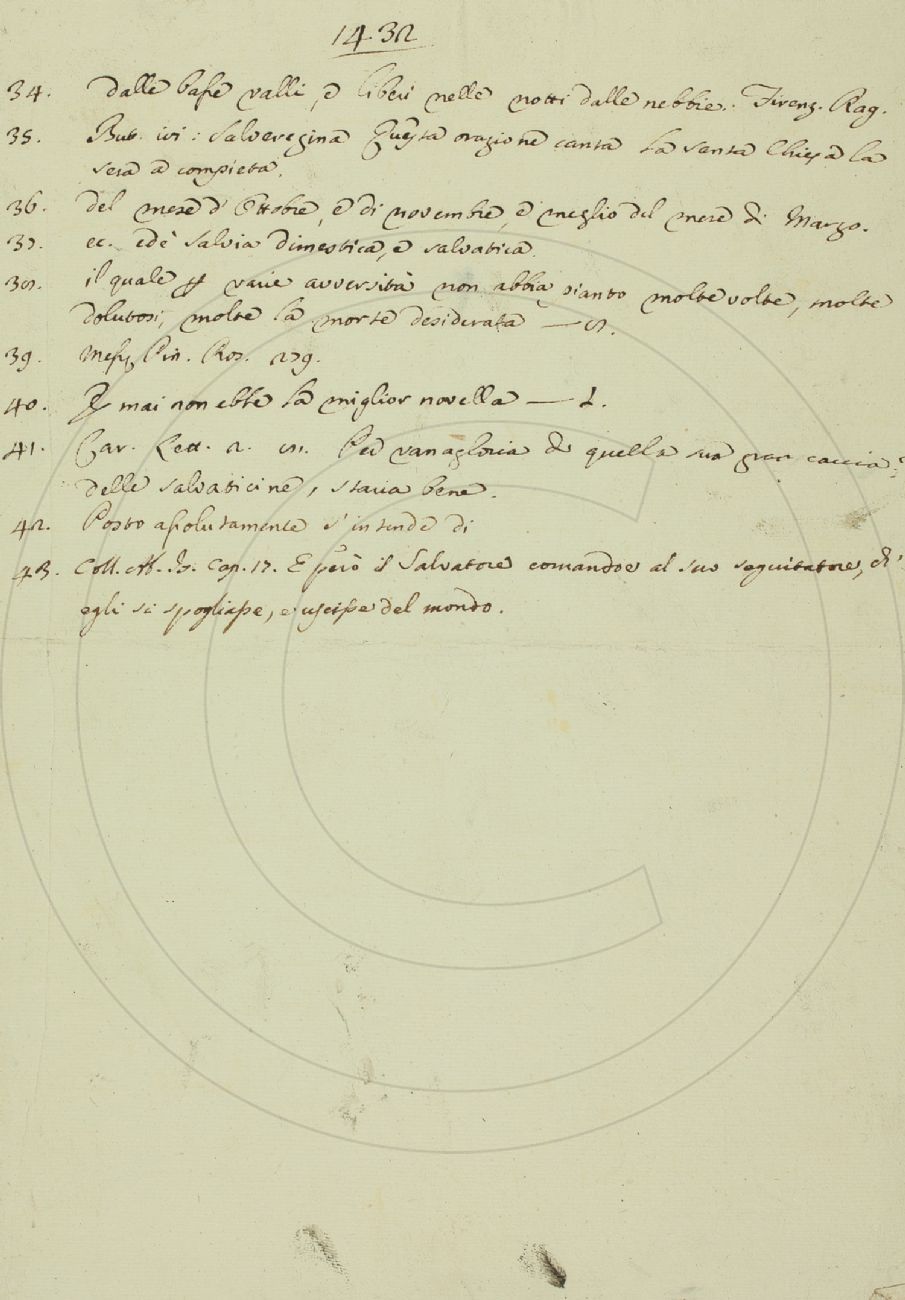 1432
34. dalle basse valli, e liberi nelle notti dalle nebbie. Firenz. Rag.
35. But. ivi: Salveregina Questa orazione canta la santa Chiesa la
sera a compieta.
36. del mese d'Ottobre, e di novembre, e meglio del mese di Marzo.
37. ec. ed è salvia dimestica, e salvatica.
38. il quale p varie avversità non abbia pianto molte volte, molte
dolutosi, molte la morte desiderata — S.
39. Mess. Cin. Ros. 279.
40. E mai non ebbe la miglior novella — L.
41. Car. Lett. 2. Per vanagloria di quella sua gran caccia
delle salvaticine, stava bene.
42. Posto assolutamente s'intende di
43. Coll. Ab. Is. Cap. 17. E però il Salvatore comandoe al suo seguitatore, ch'
egli si spogliasse, e uscisse del mondo.